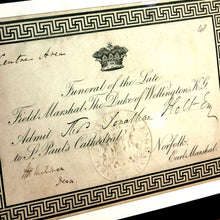 Centre Area
Funeral of the Late
Field Marshal The Duke of Wellington, K.G.
Admit Mrs Jonathan Holt Esq
to St. Paul's Cathedral.
Norfolk,
Earl Marshal.
Dean